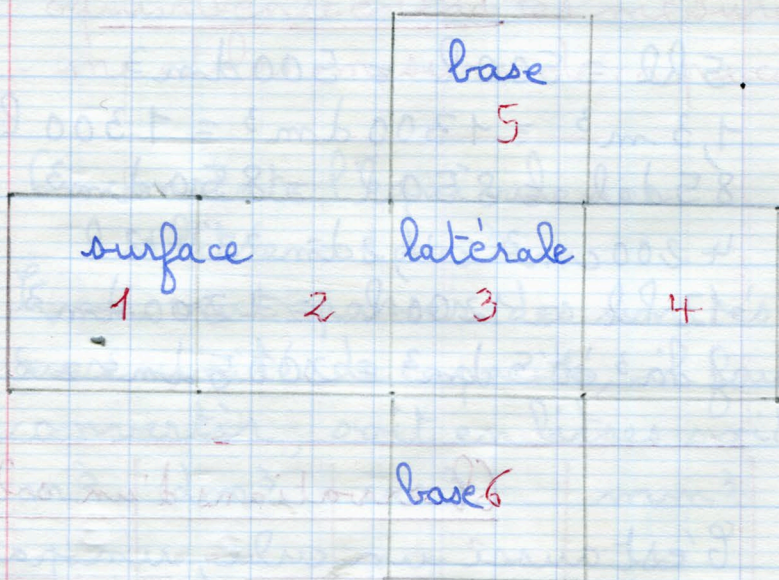 base
5
surface latérale
1 2 3 4
base 6